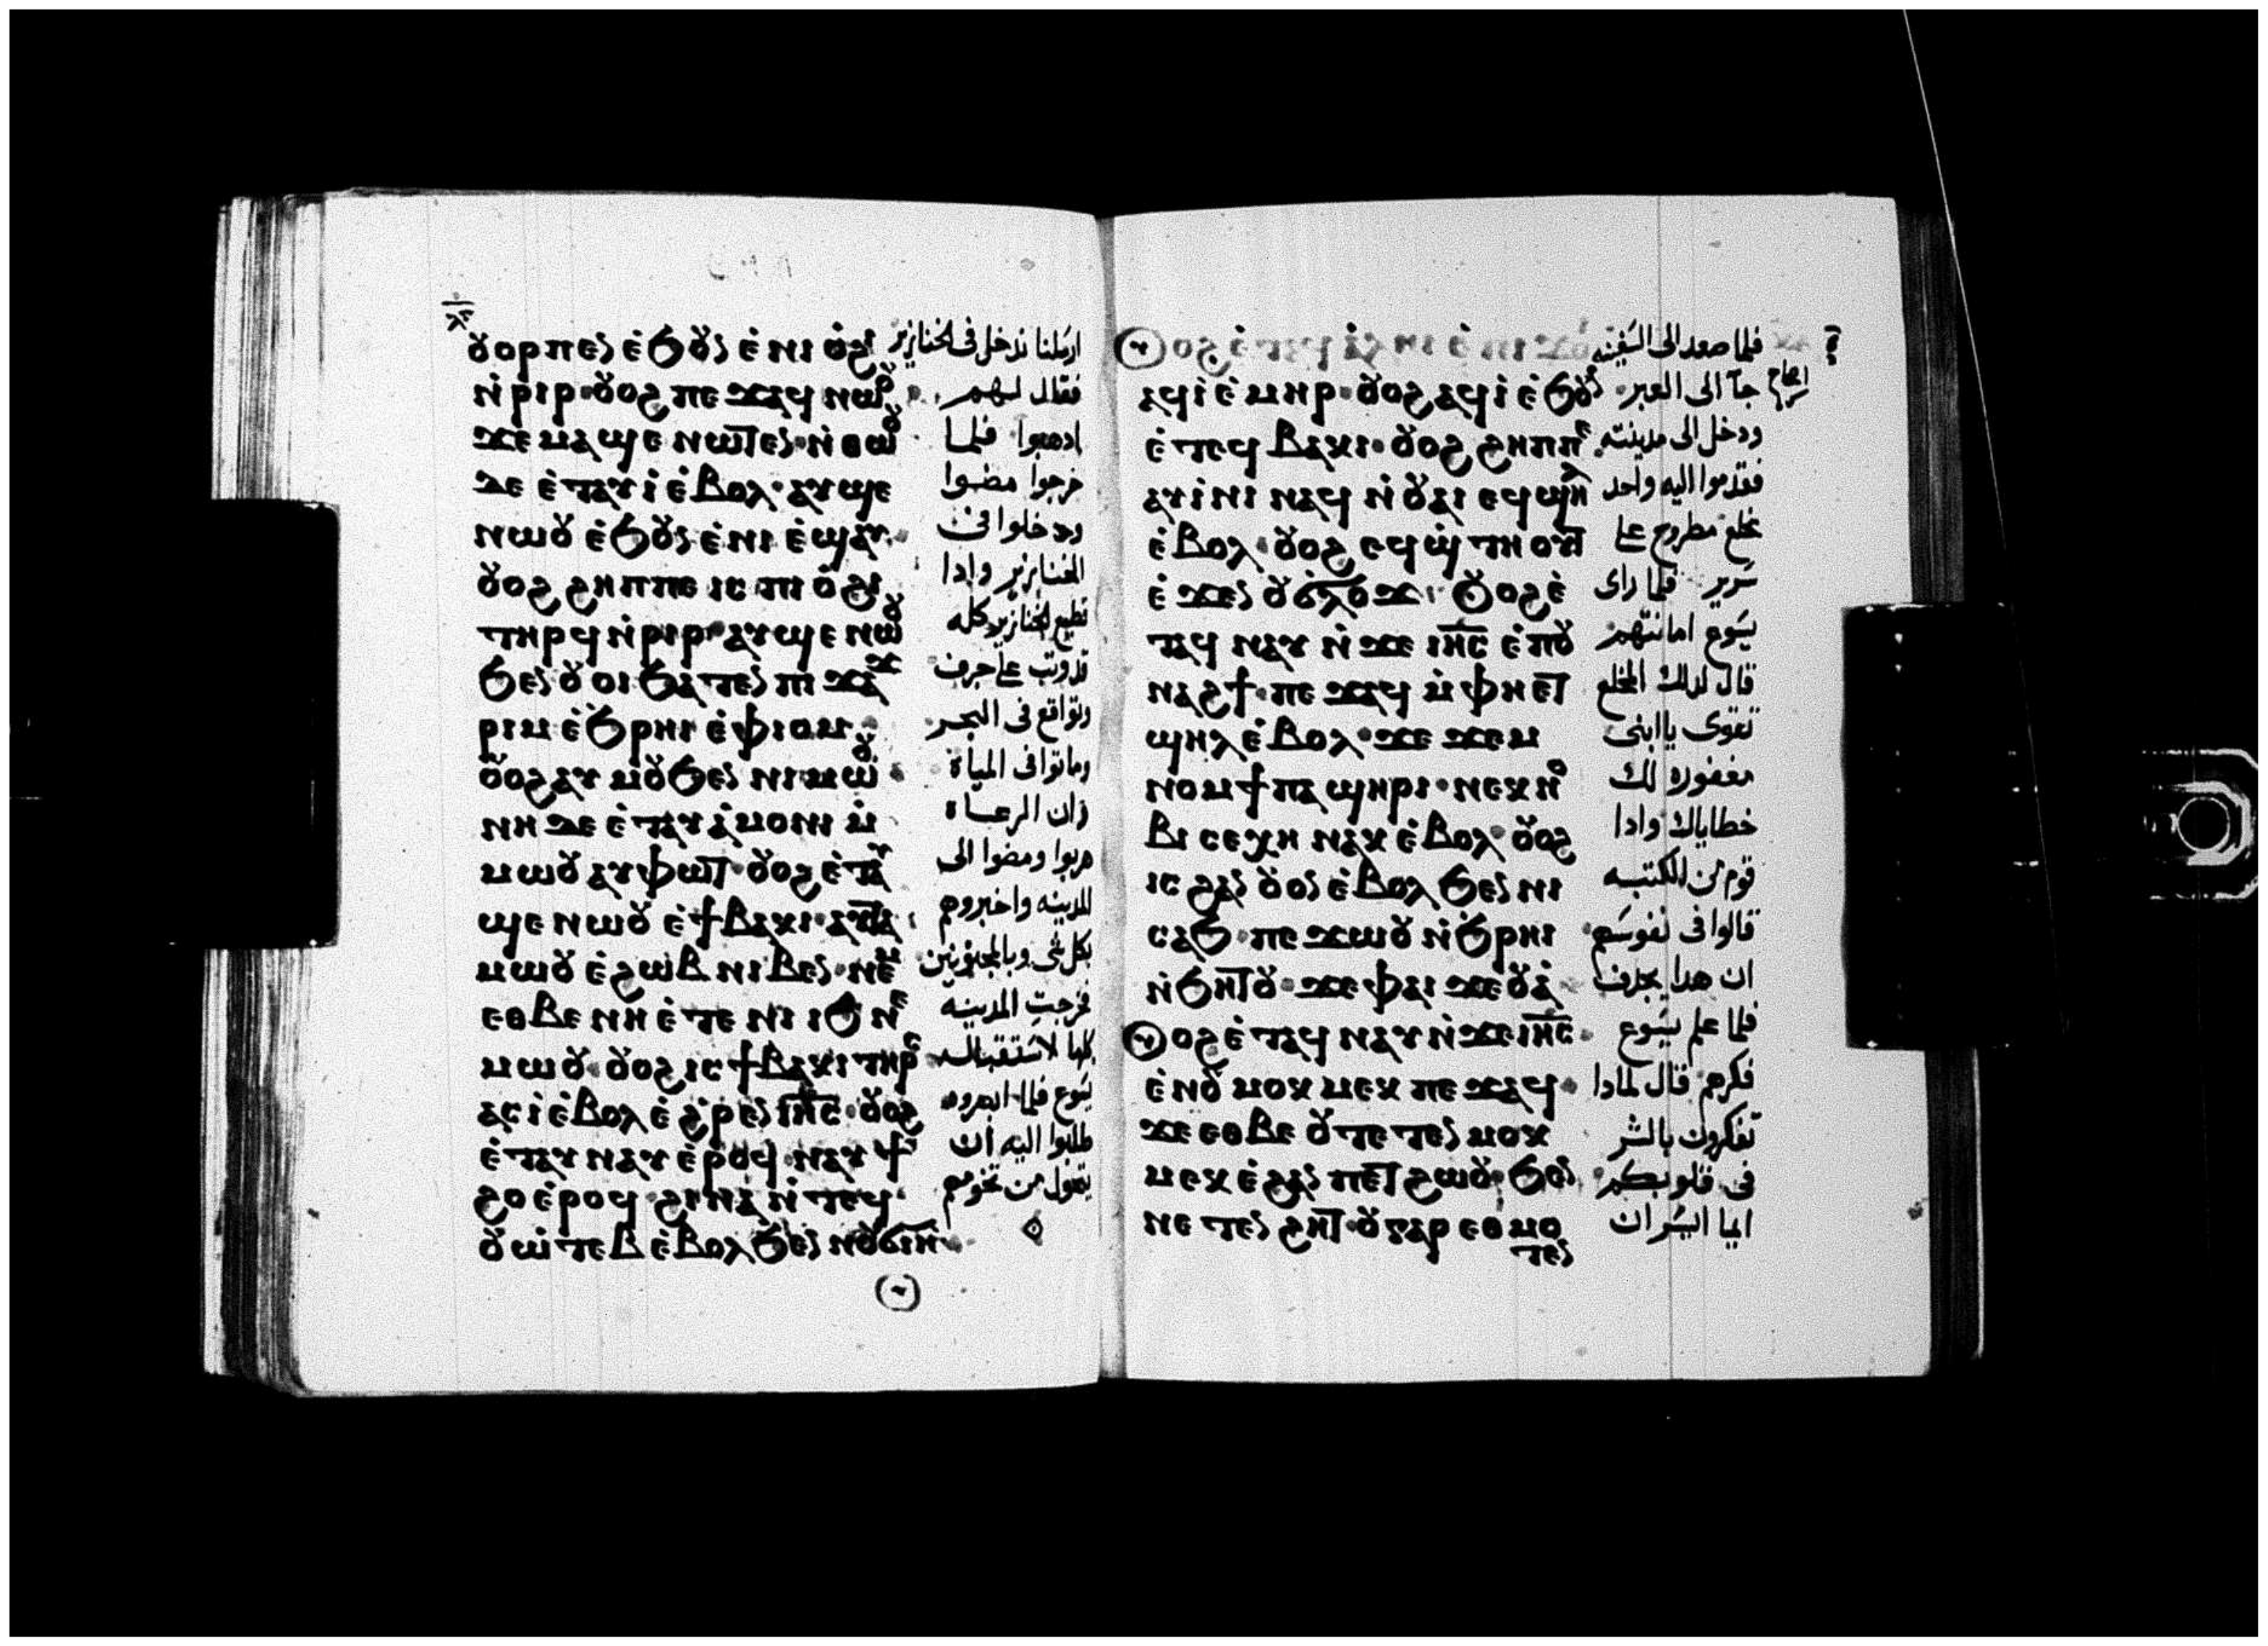 ⲟⲩⲟⲣⲡⲉⲛ ⲉ̇ϧⲟⲩⲛ ⲉ̇ⲛⲓ ⲟ̇ϩⲓ
ⲛ̇ⲣⲓⲣ · ⲟⲩⲟϩ ⲡⲉϫⲁϥ ⲛⲱⲟⲩ
ϫⲉ ⲙⲁϣⲉ ⲛⲱⲧⲉⲛ · ⲛ̇ⲑⲱⲟⲩ
ⲇⲉ ⲉ̇ⲧⲁⲩⲓ̇ ⲉ̇ⲃⲟⲗ · ⲁⲩϣⲉ
ⲛⲱⲟⲩ ⲉ̇ϧⲟⲩⲛ ⲉ̇ⲛⲓ ⲉ̇ϣⲁⲩ ·
ⲟⲩⲟϩ ϩⲏⲡⲡⲉ ⲓⲥ ⲡⲓ ⲟ̇ϩⲓ
ⲧⲏⲣϥ ⲛ̇ⲣⲓⲣ · ⲁⲩϣⲉ ⲛⲱⲟⲩ
ϧⲉⲛ ⲟⲩⲟⲓ ϧⲁⲧⲉⲛ ⲡⲓ ϫⲁϫ
ⲣⲓⲙ ⲉ̇ϧⲣⲏⲓ ⲉ̇ⲫⲓⲟⲙ ·
ⲟⲩⲟϩ ⲁⲩ ⲙⲟⲩ ϧⲉⲛ ⲛⲓⲙⲱⲟⲩ ·
ⲛⲏ ⲇⲉ ⲉ̇ⲧⲁⲩ ⲁ̇ⲙⲟⲛⲓ ⲙ̇
ⲙⲱⲟⲩ ⲁⲩⲫⲱⲧ · ⲟⲩⲟϩ ⲉ̇ⲧⲁⲩ
ϣⲉ ⲛⲱⲟⲩ ⲉ̇ϯⲃⲁⲕⲓ · ⲁⲩⲧⲁ
ⲙⲱⲟⲩ ⲉ̇ϩⲱⲃ ⲛⲓⲃⲉⲛ · ⲛⲉⲙ
ⲉⲑⲃⲉ ⲛⲏ ⲉ̇ⲧⲉ ⲛⲓ ⲓϧ ⲛⲉ
ⲙⲱⲟⲩ · ⲟⲩⲟϩ ⲓⲥ ϯⲃⲁⲕⲓ ⲧⲏⲣⲥ
ⲁⲥⲓ̇ ⲉ̇ⲃⲟⲗ ⲉ̇ϩⲣⲉⲛ ⲓⲏ̅ⲥ̅ · ⲟⲩⲟϩ
ⲉ̇ⲧⲁⲩ ⲛⲁⲩ ⲉ̇ⲣⲟϥ · ⲛⲁⲩϯ
ϩⲟ ⲉ̇ⲣⲟϥ · ϩⲓⲛⲁ ⲛ̇ⲧⲉϥ
ⲟⲩⲱ̇ⲧⲉⲃ ⲉ̇ⲃⲟⲗ ϧⲉⲛ ⲛⲟⲩϭⲓⲏ
ارسلنا ندخل في الخنازير
فقال لهم
ادهبوا فلما
خرجوا مضوا
ودخلوا في
الخنازير وادا
قطيع الخنازير كله
قد وثب على جرف
وتواقع في البحر
وماتوا في المياة
وان الرعاة
هربوا ومضوا الى
المدينه واخبروهم
بكل شى وبالمجنونين
فخرجت المدينه
كلها لاستقبال
يسوع فلما ابصروه
طلبوا اليه ان
يتحول من تخومهم
ⲁϥⲓ̇ ⲉ̇ⲙⲏⲣ · ⲟⲩⲟϩ ⲁϥⲓ̇ ⲉ̇ϧⲟⲩⲛ
ⲉ̇ⲧⲉϥ ⲃⲁⲕⲓ · ⲟⲩⲟϩ ϩⲏⲡⲡⲉ
ⲁⲩⲓ̇ⲛⲓ ⲛⲁϥ ⲛ̇ⲟⲩⲁⲓ ⲉϥϣⲏⲗ
ⲉ̇ⲃⲟⲗ · ⲟⲩⲟϩ ⲉϥϣ̇ⲧⲏⲟⲩⲧ
ⲉ̇ϫⲉⲛ ⲟⲩϭⲗⲟϫ · ⲟⲩⲟϩ ⲉ̇
ⲧⲁϥ ⲛⲁⲩ ⲛ̇ϫⲉ ⲓⲏ̅ⲥ̅ ⲉ̇ⲡⲟⲩ
ⲛⲁϩϯ · ⲡⲉϫⲁϥ ⲙ̇ⲫⲏ ⲉⲧ
ϣⲏⲗ ⲉ̇ⲃⲟⲗ · ϫⲉ ϫⲉⲙ
ⲛⲟⲙϯ ⲡⲁϣⲏⲣⲓ · ⲛⲉⲕⲛⲟ
ⲃⲓ ⲥⲉⲭⲏ ⲛⲁⲕ ⲉ̇ⲃⲟⲗ · ⲟⲩⲟϩ
ⲓⲥ ϩⲁⲛ ⲟⲩⲟⲛ ⲉ̇ⲃⲟⲗ ϧⲉⲛ ⲛⲓ
ⲥⲁϧ · ⲡⲉϫⲱⲟⲩ ⲛ̇ϧⲣⲏⲓ
ⲛ̇ϧⲏⲧⲟⲩ · ϫⲉ ⲫⲁⲓ ϫⲉⲟⲩⲁ̇
ⲟⲩⲟϩ ⲉ̇ⲧⲁϥ ⲛⲁⲩ ⲛ̇ϫⲉ ⲓⲏ̅ⲥ̅ ·
ⲉ̇ⲛⲟⲩ ⲙⲟⲕⲙⲉⲕ ⲡⲉϫⲁϥ ·
ϫⲉ ⲉⲑⲃⲉ ⲟⲩ ⲧⲉⲧⲉⲛ ⲙⲟⲕ
ⲙⲉⲕ ⲉ̇ϩⲁⲛ ⲡⲉⲧϩⲱⲟⲩ · ϧⲉⲛ
ⲛⲉⲧⲉⲛ ϩⲏⲧ · ⲟⲩ ⲅⲁⲣ ⲉⲑⲙⲟ
ⲧⲉⲛ
فلما صعد الى السفينه
جآ الى العبر
ودخل الى مدينته
فقدموا اليه واحد
مخلع مطروح على
سرير فلما راى
يسوع امانتهم
قال لدلك المخلع
تقوى يا ابنى
مغفوره لك
خطاياك وادا
قوم من الكتبه
قالوا في نفوسهم
ان هدا يجدف
فلما علم يسوع
فكرهم قال لمادا
تفكرون بالشر
في قلوبكم
ايما ايسر ان